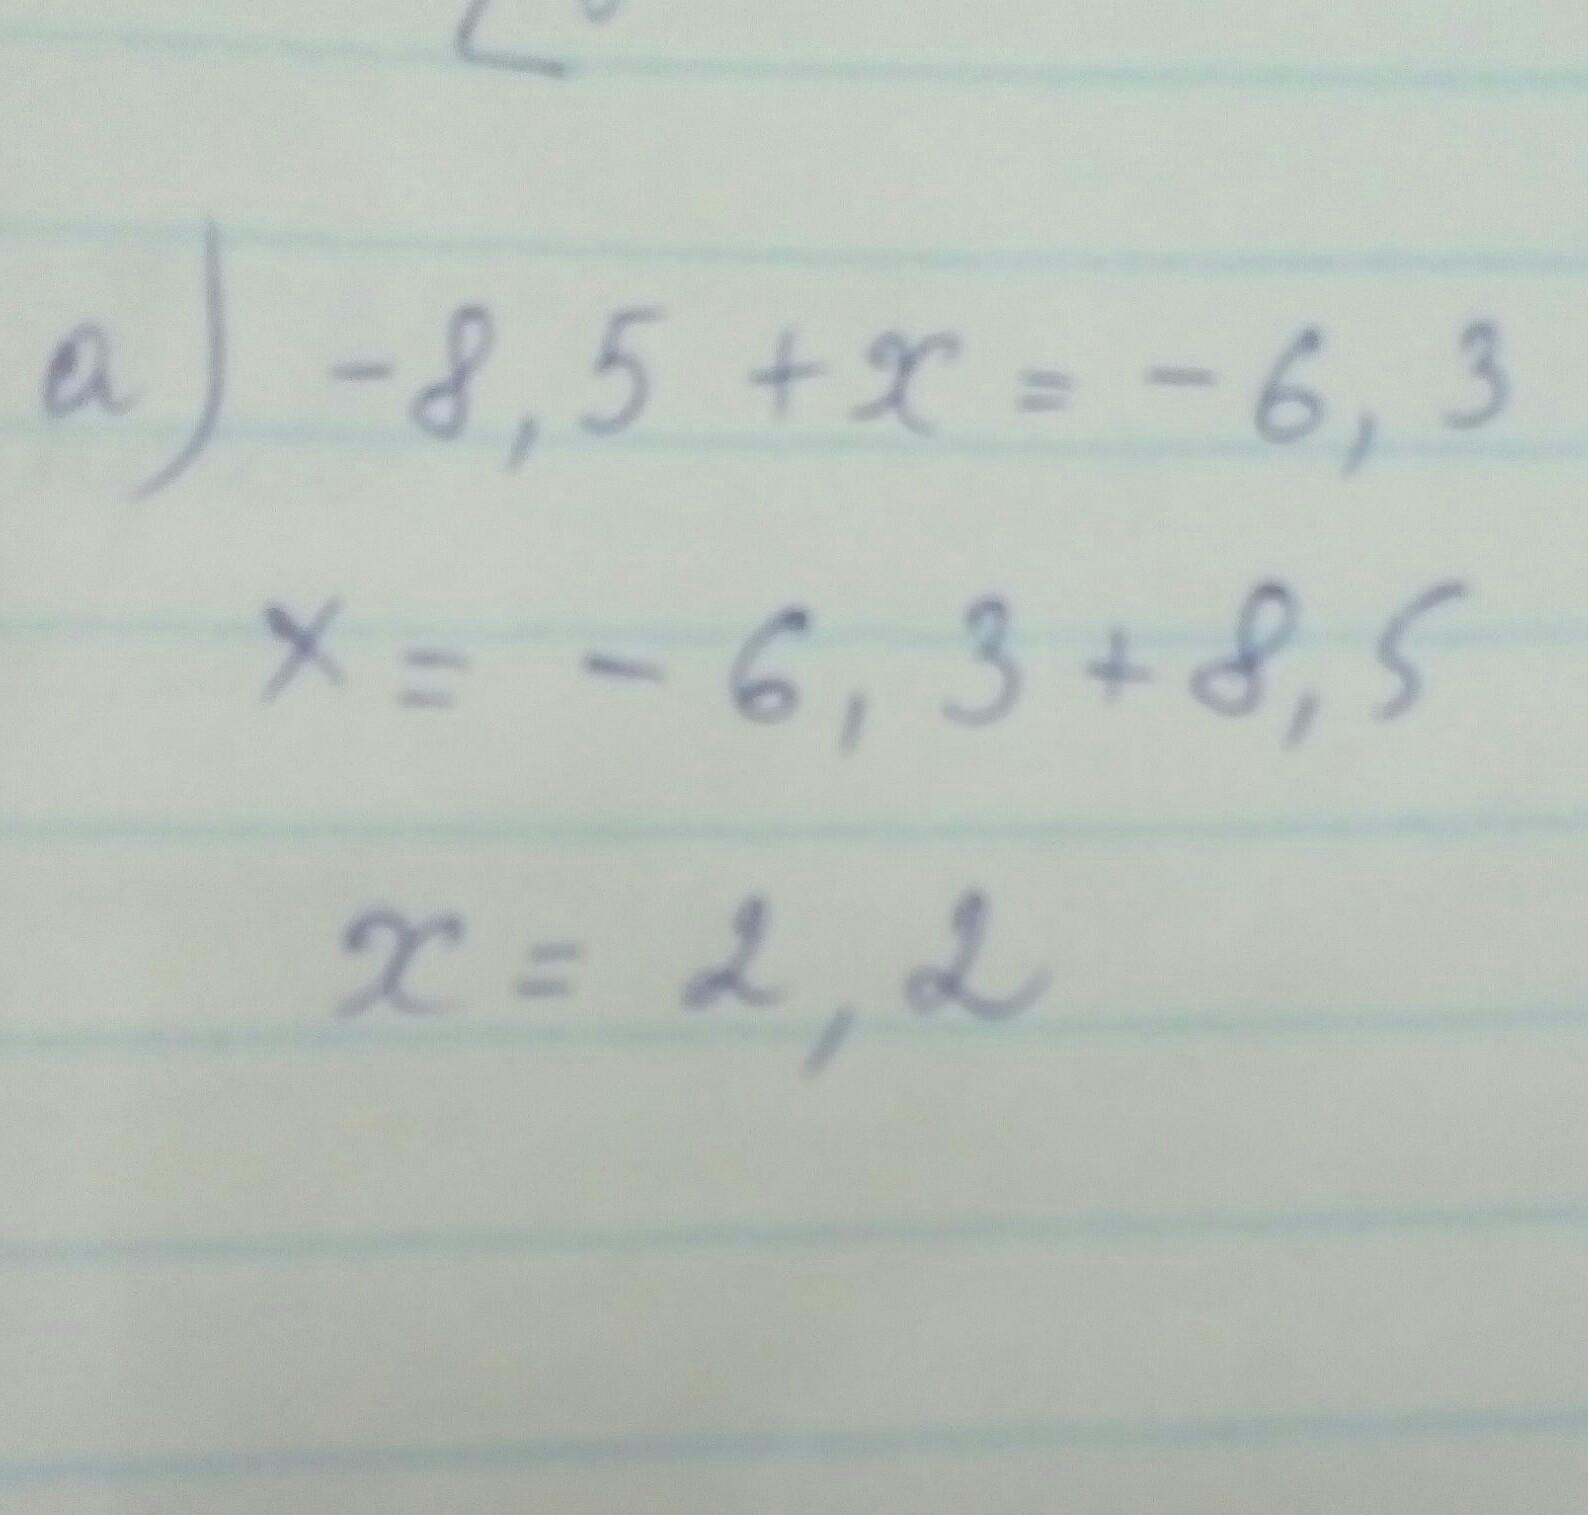 а) -8,5 + x = -6,3
x = -6,3 + 8,5
x = 2,2